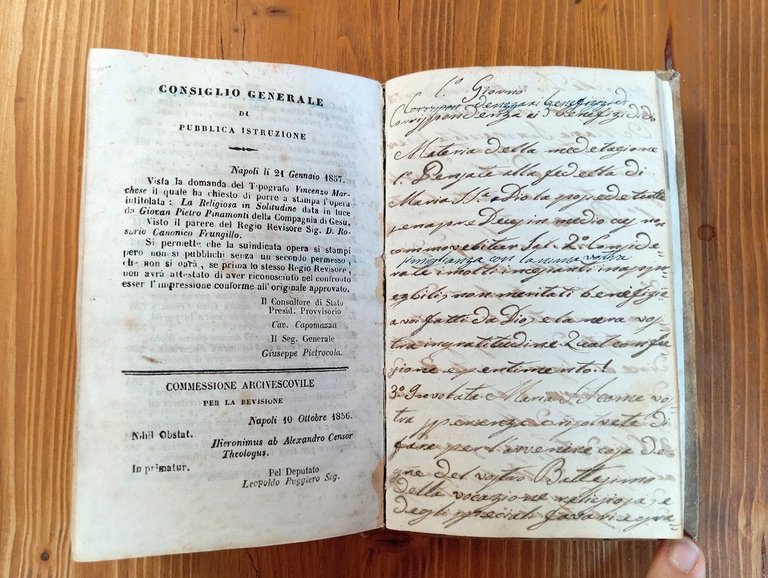 CONSIGLIO GENERALE
DI
PUBBLICA ISTRUZIONE
Napoli li 21 Gennaio 1857.
Vista la domanda del Tipografo Vincenzo Mar-
chese il quale ha chiesto di porre a stampa l'opera
intitolata: La Religiosa in Solitudine data in luce
da Giovan Pietro Pinamonti della Compagnia di Gesù.
Visto il parere del Regio Revisore Sig. D. Ro-
sario Canonico Frungillo.
Si permette che la suindicata opera si stampi
però non si pubblichi senza un secondo permesso,
che non si darà, se prima lo stesso Regio Revisore,
non avrà attestato di aver riconosciuto nel confronto
esser l'impressione conforme all'originale approvato.
Il Consultore di Stato
Presid. Provvisorio
Cav. Capomazza
Il Seg. Generale
Giuseppe Pietrocola.
COMMESSIONE ARCIVESCOVILE
PER LA REVISIONE
Napoli 10 Ottobre 1856.
Nihil Obstat.
Hieronimus ab Alexandro Censor
Theologus.
Imprimatur.
Pel Deputato
Leopoldo Ruggiero Seg.
1º Giorno
Corrispondenza ai benefizi di
Materia della medetazione
1º Pensate alla fedeltà di
Maria SS. a Dio
in medio
2º Conside
rate i molti
non meritati benefizi
a voi fatti da Dio, e la nera vos
tra ingratitudine Qual confu
sione e pentimento!
3º Maria SS. come vo
fare per l'avvenire cose de
gne del vostro Battesimo
della vocazione religiosa, e
degli speciali favori e gra